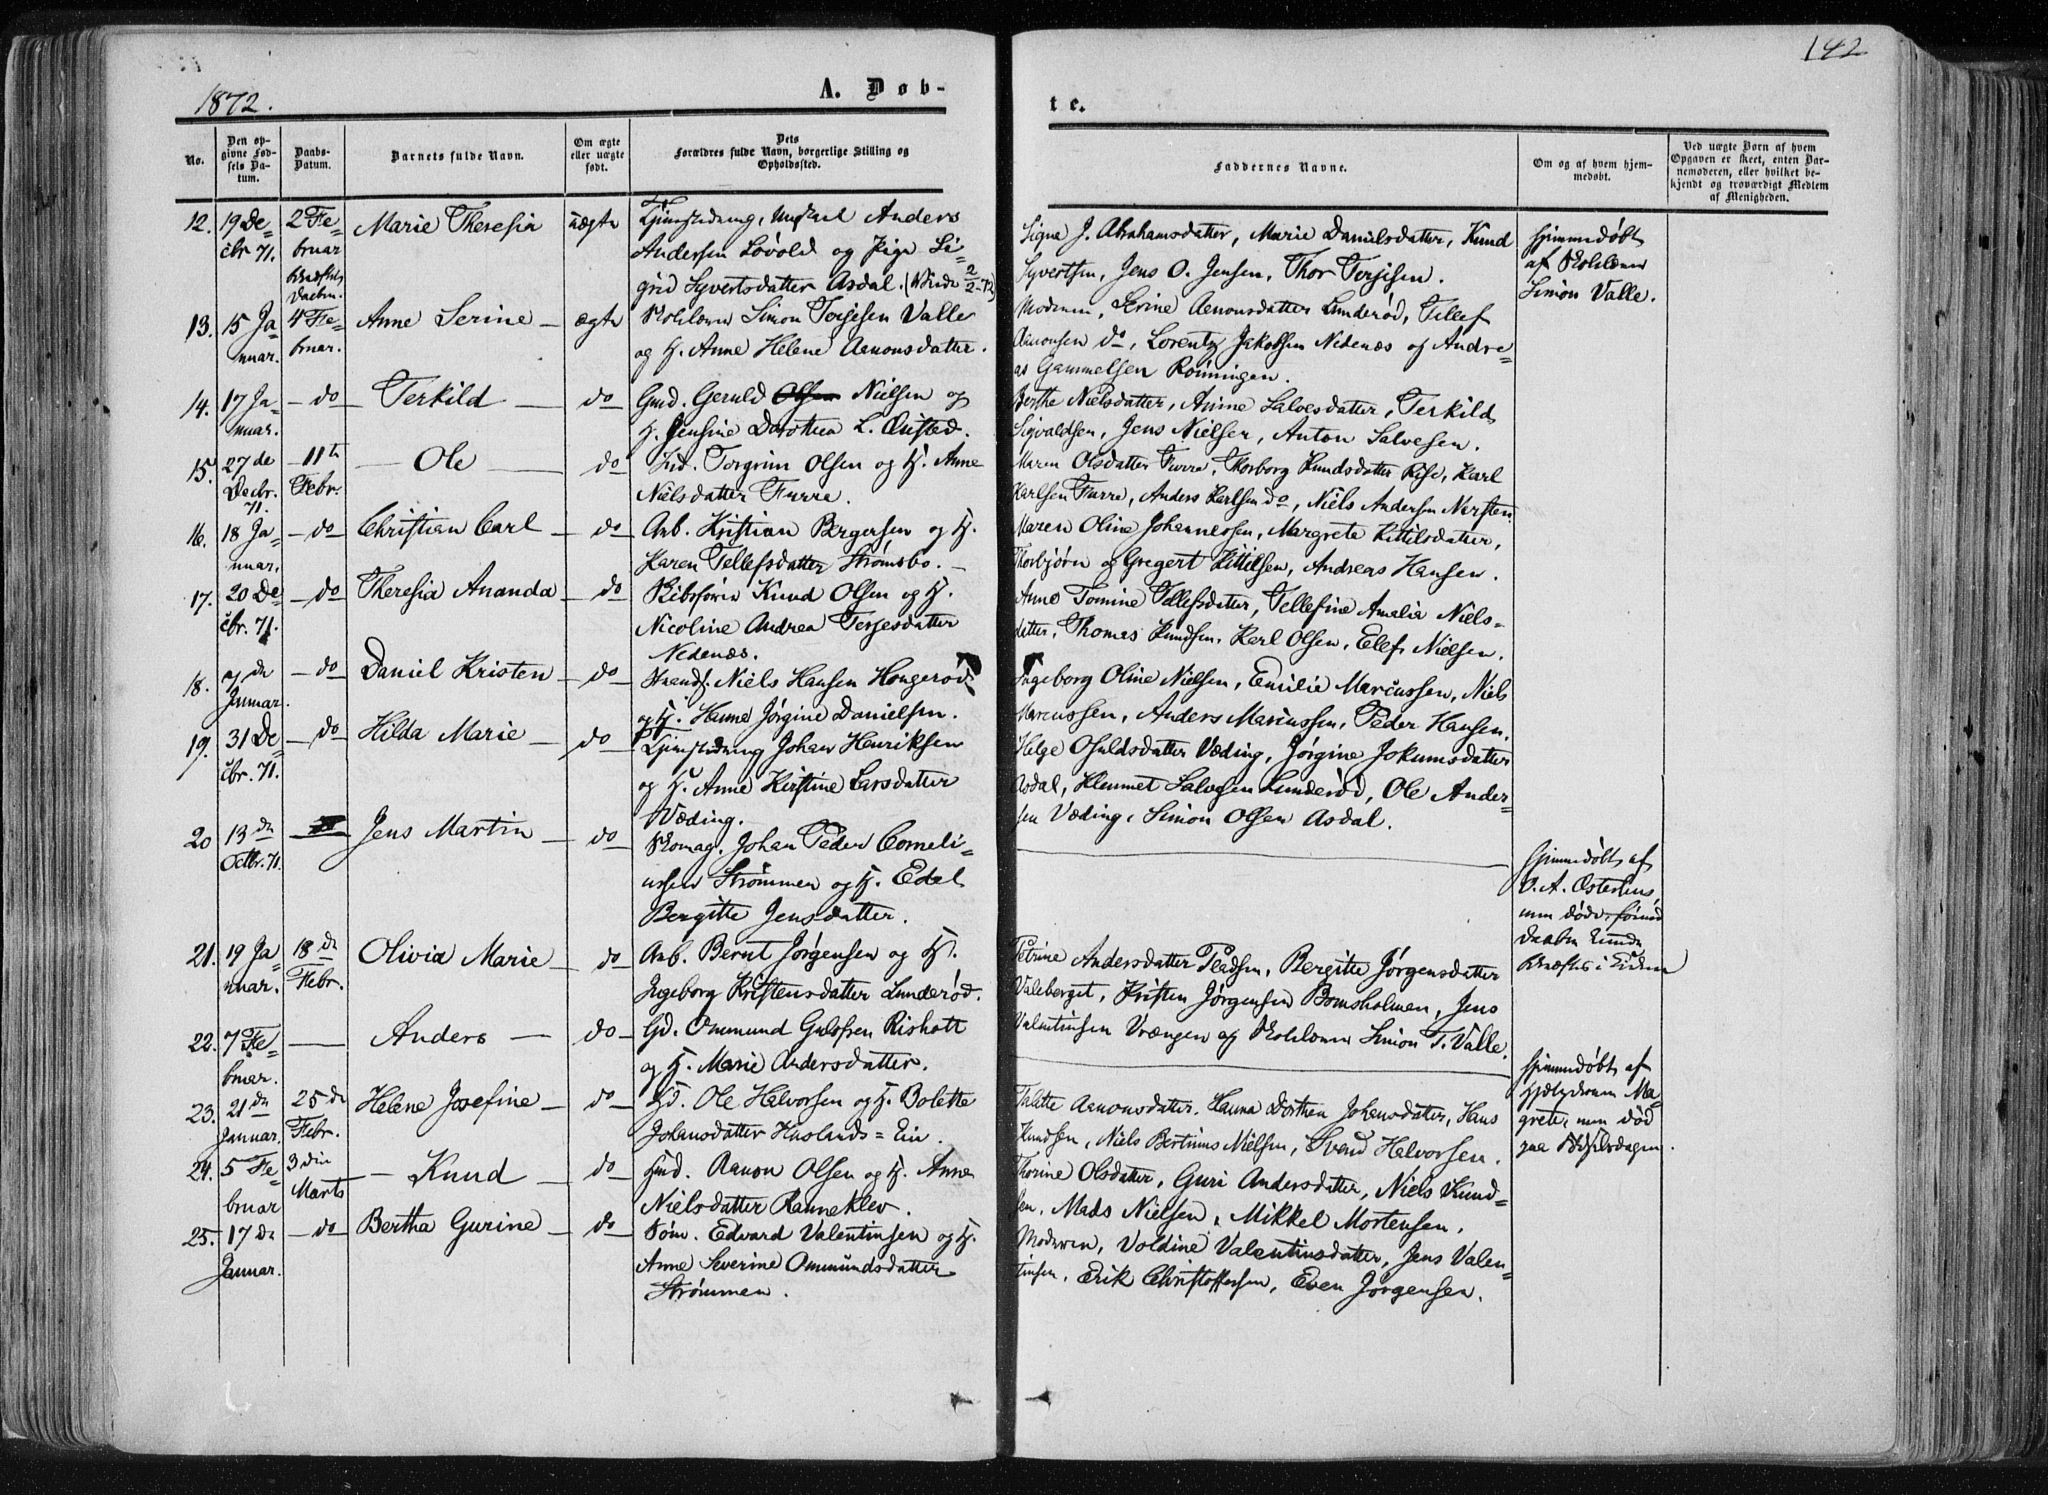 1872.
142
A. Døb-
te.
No.
Den op-
givne Fød-
sels Da-
tum.
Daabs-
Datum.
Barnets fulde Navn.
Om ægte
eller uægte
født.
Dets
Forældres fulde Navn, borgerlige Stilling og
Opholdssted.
Faddernes Navne.
Om og af hvem hjem-
medøbt.
Ved uægte Børn af hvem
Opgaven er skeet, enten Bar-
nemoderen, eller hvilket be-
kjendt og troværdigt Medlem
af Menigheden.
12. 19 De= 2 Fe= Marie Theresia uægte Anders
cbr. 71. bruar
Andersen Løvold og Pige Si=
grid Syvertsdatter Asdal.
Signe J. Abrahamsdatter, Marie Danielsdatter, Knud
Syvertsen, Jens O. Jensen, Thor Terjesen.
Hjemmedøbt
af
Simon Valle.
13. 15 Ja= 4 Fe= Anne Serine — ægte Simon Terjesen Valle
nuar. bruar. og H. Anne Helene Aanonsdatter.
Moderen, Serine Aanonsdatter Lunderød, Tellef
Aanonsen do, Lorentz Jakobsen Nedenæs og Andre=
as Gammelsen Rønningen.
14. 17 Ja= — do Terkild — do Gmd. Geruld Olsen Nielsen og
nuar. H. Jensine Dorothea L. Øisted.
Berthe Nielsdatter, Anne Salvesdatter, Terkild
Sigvaldsen, Jens Nielsen, Anton Salvesen.
15. 27 de — 11te — Ole — do Torgrim Olsen og H. Anne
Decbr. Febr. Nielsdatter Furre.
71.
Maren Olsdatter Furre, Thorborg Knudsdatter Rise, Karl
Karlsen Furre, Anders Karlsen do, Niels Andersen
16. 18 Ja= — do Christian Carl — do Arb. Kristian Bergersen og H.
nuar. Karen Tellefsdatter Strømsbo. —
Maren Oline Johannessen, Margrete Kittilsdatter,
Thorbjørn og Gregert Kittilsen, Andreas Hansen.
17. 20 De= — do Theresia Ananda — do Knud Olsen og H.
cbr. 71. Nicoline Andrea Terjesdatter
Nedenæs.
Anne Tomine Tellefsdatter, Tellefine Amalie Niels=
datter, Thomas Knudsen, Karl Olsen, Elef Nielsen.
18. 7 de — do Daniel Kristen — do Niels Hansen Hougerød
Januar. og H. Hanne Jørgine Danielsen.
Ingeborg Oline Nielsen, Emilie Marcussen, Niels
Marcussen, Anders Marcussen, Peder Hansen.
19. 31 De= — do Hilda Marie — do Johan Henriksen
cbr. 71. og H. Anne Kirstine Larsdatter
Væding.
Helge Osuldsdatter Væding, Jørgine Jokumsdatter
Asdal, Klemmet Salvesen Lunderød, Ole Ander=
sen Væding, Simon Olsen Asdal.
20 13 de — Jens Martin — do Johan Peder Corneli=
Octbr. 71. ussen Strømmen og H. Edel
Bergitte Jensdatter.
Hjemmedøbt af
21. 19 Ja= 18 de Olivia Marie — do Arb. Bernt Jørgensen og H.
nuar. Febr. Ingeborg Kristensdatter Lunderød.
Petrine Andersdatter Bergitte Jørgensdatter
Valeberget, Kristen Jørgensen Bomsholmen, Jens
Valentinsen Vrængen og Simon T. Valle.
22. 7 Fe= — Anders — do Gd. Ommund Gulofsen Risholt
bruar. og H. Marie Andersdatter.
Hjemmedøbt af
Ma=
grete, men død
23. 21 de 25 de Helene Josefine — do Ole Halvorsen og H. Bolette
Januar. Febr. Johansdatter
Talette Aanonsdatter, Hanna Dorthea Johansdatter, Hans
Knudsen, Niels Bertinius Nielsen, Svend Halvorsen.
24. 5 Fe= 3 die — Knud — do Aanon Olsen og H. Anne
bruar Marts Nielsdatter Ranneklev.
Thorine Olsdatter, Guri Andersdatter, Niels Knud=
sen, Mads Nielsen, Mikkel Mortensen.
25. 17 de — do Bertha Gurine — do Søm. Edvard Valentinsen og H.
Januar. Anne Severine Ommundsdatter
Strømmen.
Moderen, Voldine Valentinsdatter, Jens Valen=
tinsen, Erik Christoffersen, Even Jørgensen.